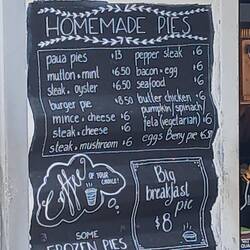 HOMEMADE PIES
paua pies $13
mutton & mint $6.50
steak & oyster $6.50
burger pie $8.50
mince & cheese $6
steak & cheese $6
steak & mushroom $6
pepper steak $6
bacon & egg $6
seafood $6
butter chicken $6
pumpkin, spinach,
feta (vegetarian) $6
eggs Beny pie $6.50
Coffee
OF YOUR CHOICE!
Big
breakfast
pie
$8
SOME
FROZEN PIES